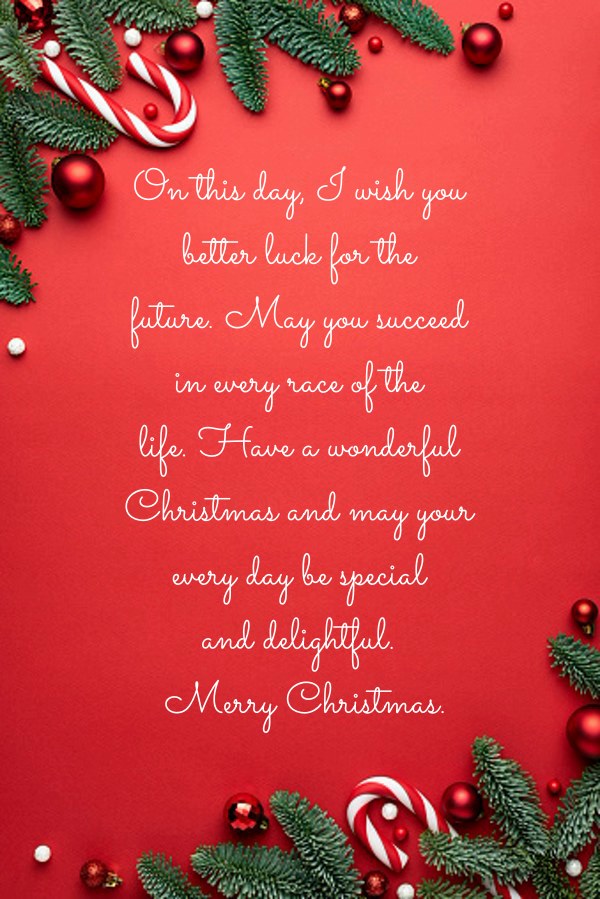 On this day, I wish you
better luck for the
future. May you succeed
in every race of the
life. Have a wonderful
Christmas and may your
every day be special
and delightful.
Merry Christmas.